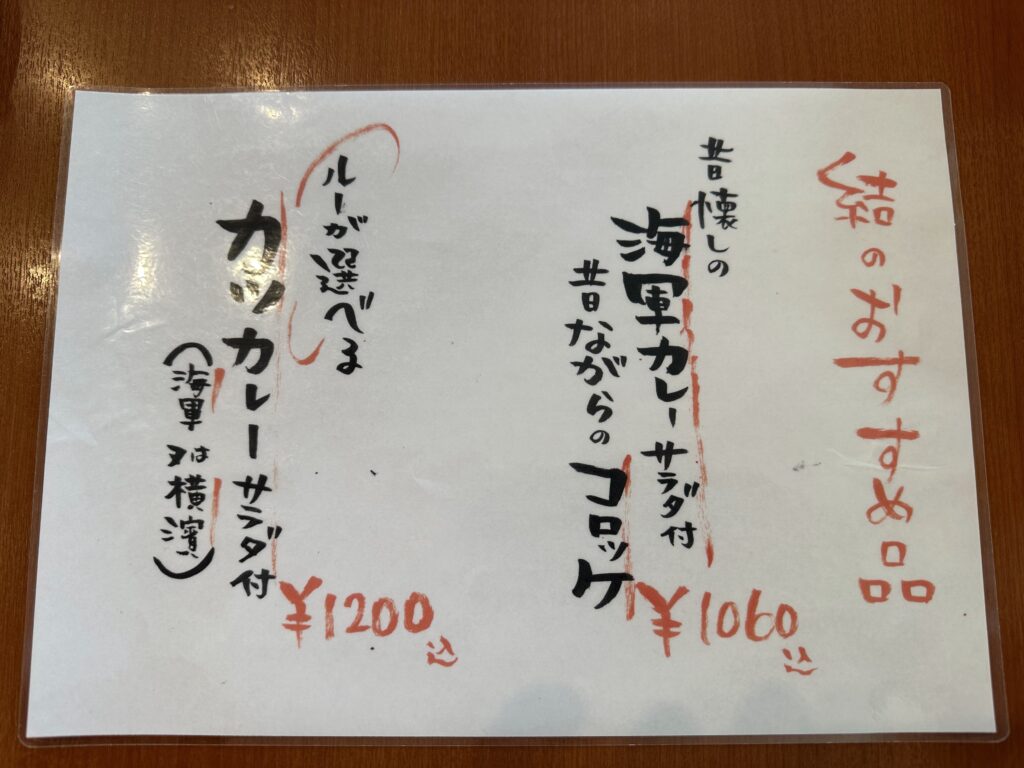 結のおすすめ品
昔懐しの
海軍カレーサラダ付
昔ながらのコロッケ
¥1060込
ルーが選べる
カツカレーサラダ付
(海軍又は横濱)
¥1200込